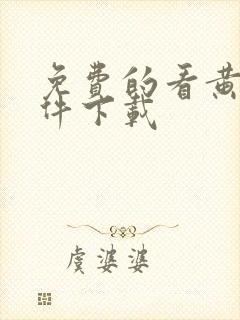 免费的看黄
件下载
虞婆婆